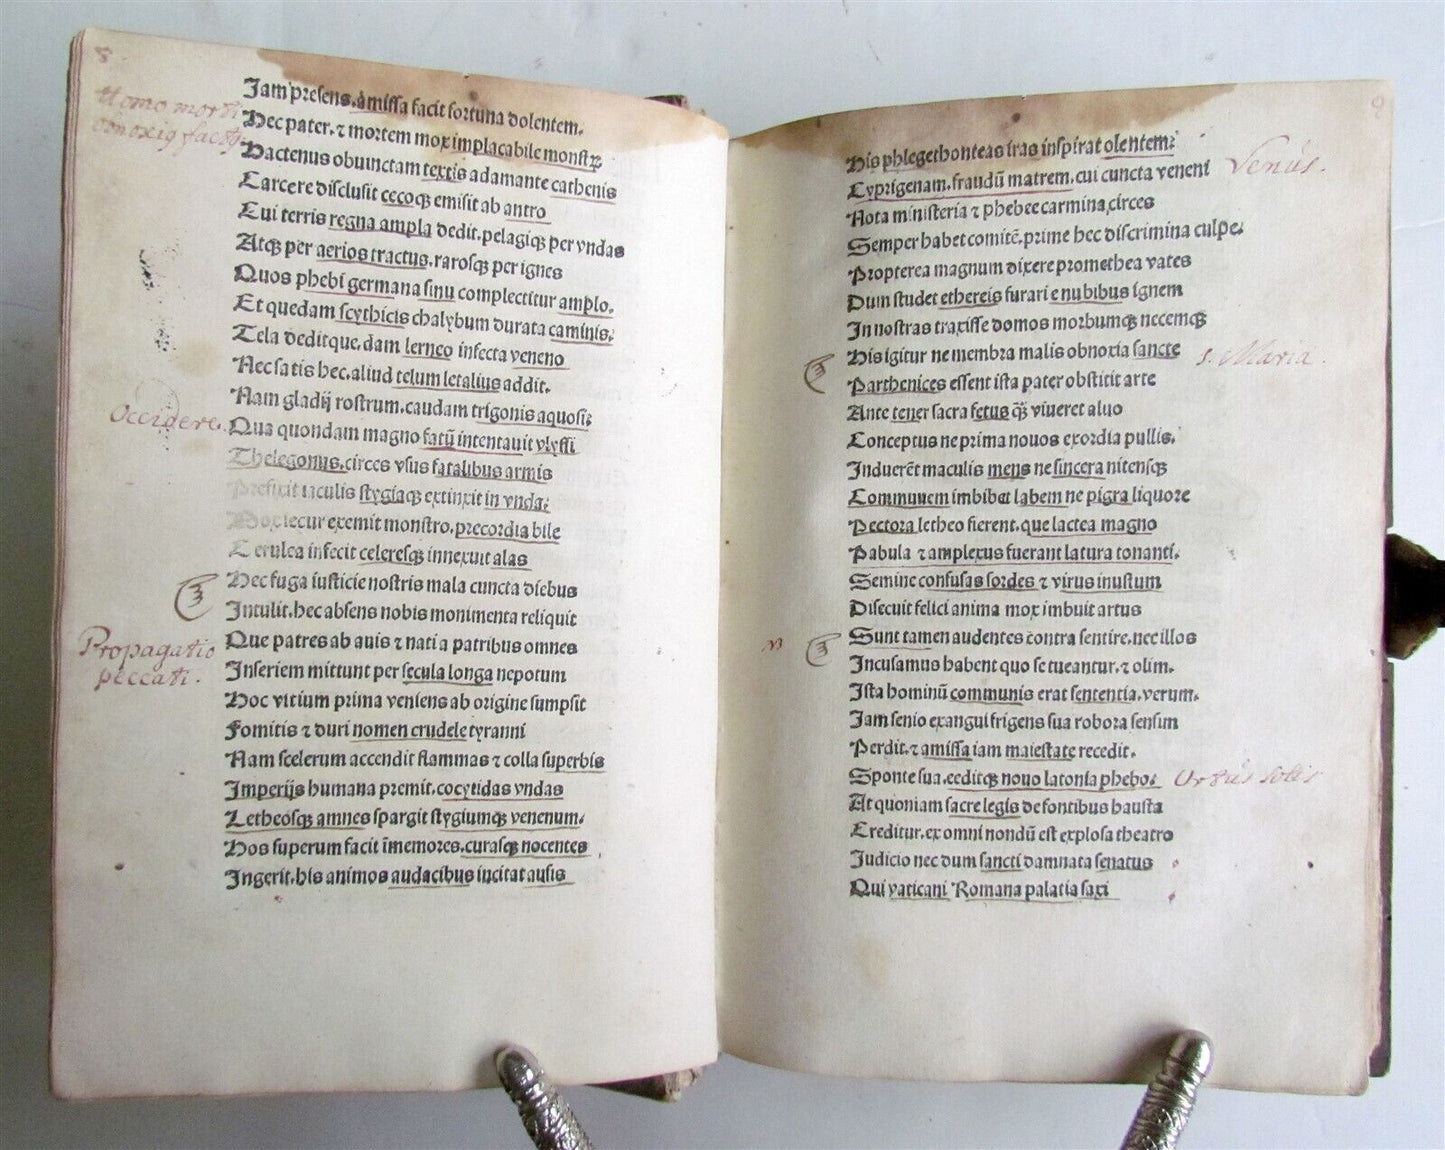 8
Homo morti
obnoxiꝯ factꝯ
Jam presens, amissa facit fortuna dolentem.
Hec pater, ⁊ mortem mox implacabile monstꝝ
Hactenus obuinctam textis adamante cathenis
Carcere disclusit cecoqꝫ emisit ab antro
Cui terris regna ampla dedit, pelagiqꝫ per vndas
Atqꝫ per aerios tractus, rarosqꝫ per ignes
Quos phebi germana sinu complectitur amplo.
Et quedam scythicis chalybum durata caminis.
Tela deditque, dam lerneo infecta veneno
Nec satis hec, aliud telum letalius addit.
Nam gladij rostrum, caudam trigonis aquosi:
Occidere.
Qua quondam magno fatū intentauit vlyssi
Thelegonus, circes vsus fatalibus armis
Prefixit iaculis stygiaqꝫ extinxit in vnda:
Mox iecur exemit monstro, precordia bile
Cerulea infecit celeresqꝫ innexuit alas
Hec fuga iusticie nostris mala cuncta diebus
Intulit, hec absens nobis monimenta reliquit
Propagatio
peccati.
Que patres ab auis ⁊ nati a patribus omnes
Inseriem mittunt per secula longa nepotum
Hoc vitium prima veniens ab origine sumpsit
Fomitis ⁊ duri nomen crudele tyranni
Nam scelerum accendit flammas ⁊ colla superbis
Imperijs humana premit, cocytidas vndas
Letheosqꝫ amnes spargit stygiumqꝫ venenum.
Hos superum facit īmemores, curasqꝫ nocentes
Ingerit, his animos audacibus incitat ausis
9
His phlegethonteas iras inspirat olentem:
Cyprigenam, fraudū matrem, cui cuncta veneni
Venus.
Nota ministeria ⁊ phebee carmina circes
Semper habet comitē, prime hec discrimina culpe.
Propterea magnum dixere promethea vates
Dum studet ethereis furari e nubibus ignem
In nostras traxisse domos morbumqꝫ necemqꝫ
His igitur ne membra malis obnoxia sancte
S. Maria.
Parthenices essent ista pater obstitit arte
Ante tener sacra fetus qꝫ̄ viueret aluo
Conceptus ne prima nouos exordia pullis.
Induerēt maculis mens ne sincera nitensqꝫ
Communem imbibat labem ne pigra liquore
Pectora letheo fierent, que lactea magno
Pabula ⁊ amplexus fuerant latura tonanti.
Semine confusas sordes ⁊ virus inustum
Disecuit felici anima mox imbuit artus
Sunt tamen audentes contra sentire, nec illos
Incusamus habent quo se tueantur, ⁊ olim.
Ista hominū communis erat sententia, verum.
Jam senio exangui frigens sua robora sensim
Perdit, ⁊ amissa iam maiestate recedit.
Sponte sua, ceditqꝫ nouo latonia phebo:
Ortus solis
At quoniam sacre legis de fontibus hausta
Creditur, ex omni nondū est explosa theatro
Judicio nec dum sancti damnata senatus
Qui vaticani Romana palatia saxi